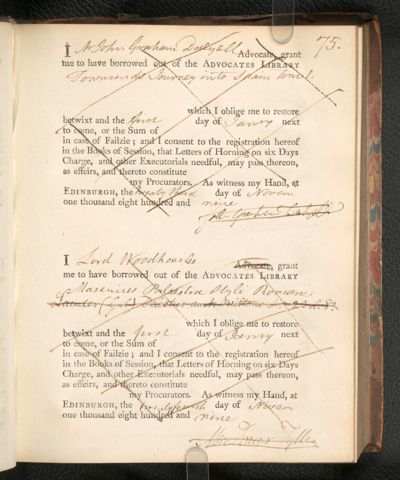 75.
I Mr John Graham Dalyell Advocate, grant
me to have borrowed out of the ADVOCATES LIBRARY
Townsends Journey into Spain
which I oblige me to restore
betwixt and the first day of Janry next
to come, or the Sum of
in case of Failzie; and I consent to the registration hereof
in the Books of Session, that Letters of Horning on six Days
Charge, and other Executorials needful, may pass thereon,
as effeirs, and thereto constitute
my Procurators. As witness my Hand, at
EDINBURGH, the twenty third day of Novem
one thousand eight hundred and nine
I Lord Woodhouslee Advocate, grant
me to have borrowed out of the ADVOCATES LIBRARY
Masenius Palaestra Styli Romani
Lauder
which I oblige me to restore
betwixt and the first day of Janry next
to come, or the Sum of
in case of Failzie; and I consent to the registration hereof
in the Books of Session, that Letters of Horning on six Days
Charge, and other Executorials needful, may pass thereon,
as effeirs, and thereto constitute
my Procurators. As witness my Hand, at
EDINBURGH, the day of Novem
one thousand eight hundred and nine
Fraser Tytler